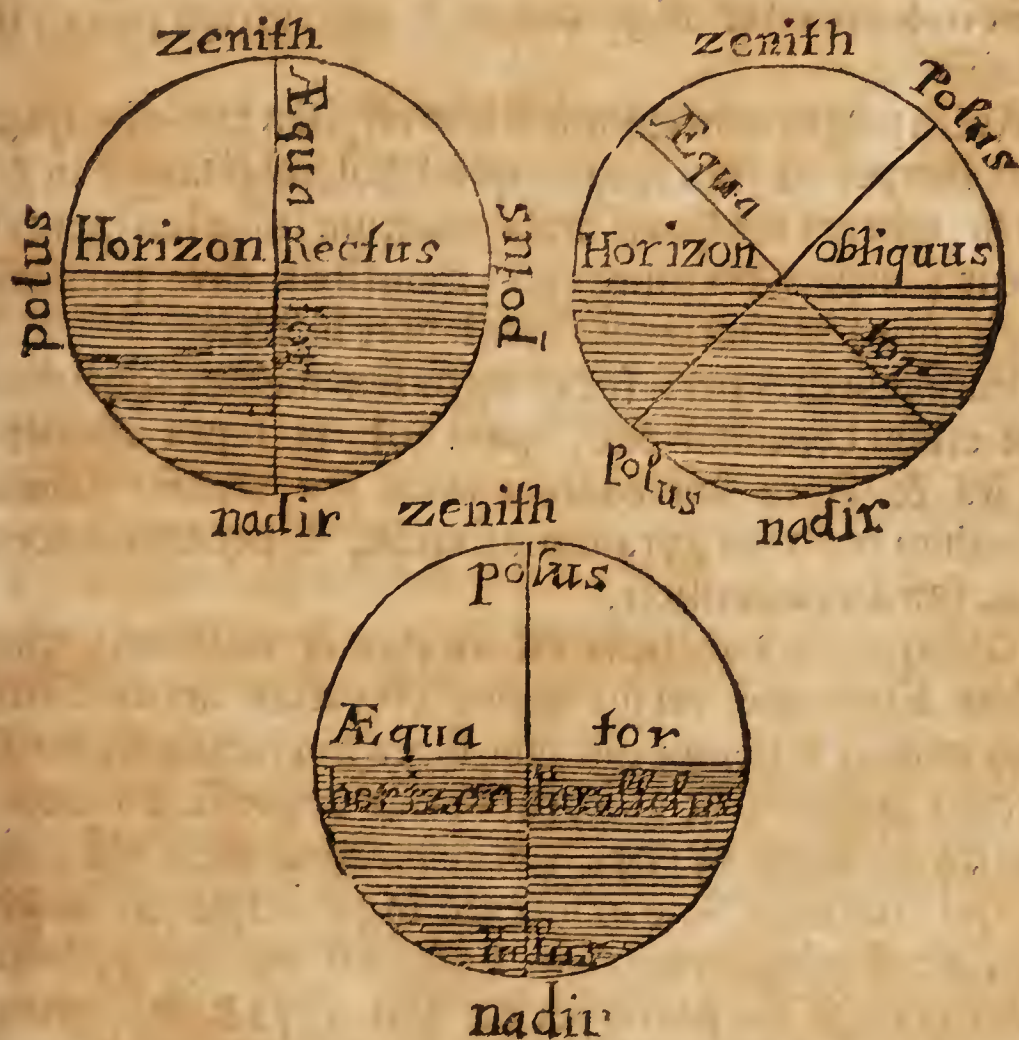 zenith
Æqua
tor
polus
Horizon Rectus
polus
nadir
zenith
Polus
Æqua
Horizon obliquus
tor
Polus
nadir
zenith
polus
Æqua tor
horizon parallelus
Polus
nadir